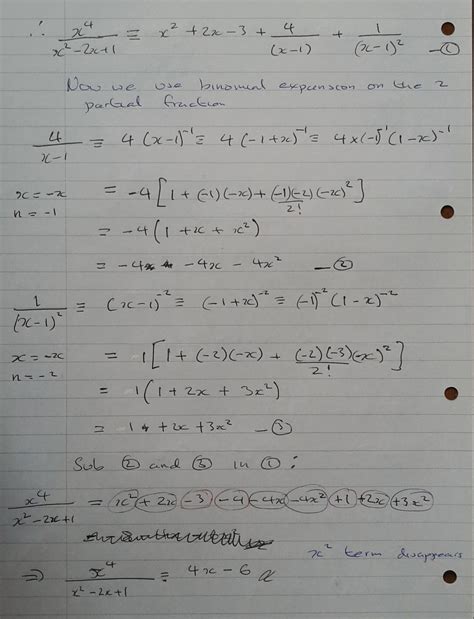 ∴ x⁴/(x²-2x+1) ≡ x² + 2x - 3 + 4/(x-1) + 1/(x-1)² - ①
Now we use binomial expansion on the 2
partial fraction
4/(x-1) ≡ 4(x-1)⁻¹ ≡ 4(-1+x)⁻¹ ≡ 4×(-1)⁻¹(1-x)⁻¹
x = -x
n = -1
= -4[1 + (-1)(-x) + (-1)(-2)(-x)²/2!]
= -4(1 + x + x²)
= -4 - 4x - 4x² - ②
1/(x-1)² ≡ (x-1)⁻² ≡ (-1+x)⁻² ≡ (-1)⁻²(1-x)⁻²
x = -x
n = -2
= 1[1 + (-2)(-x) + (-2)(-3)(-x)²/2!]
= 1(1 + 2x + 3x²)
= 1 + 2x + 3x² - ③
Sub ② and ③ in ① :
x⁴/(x²-2x+1) = x² + 2x - 3 - 4 - 4x - 4x² + 1 + 2x + 3x²
x² term disappears
⇒ x⁴/(x²-2x+1) ≡ 4x - 6